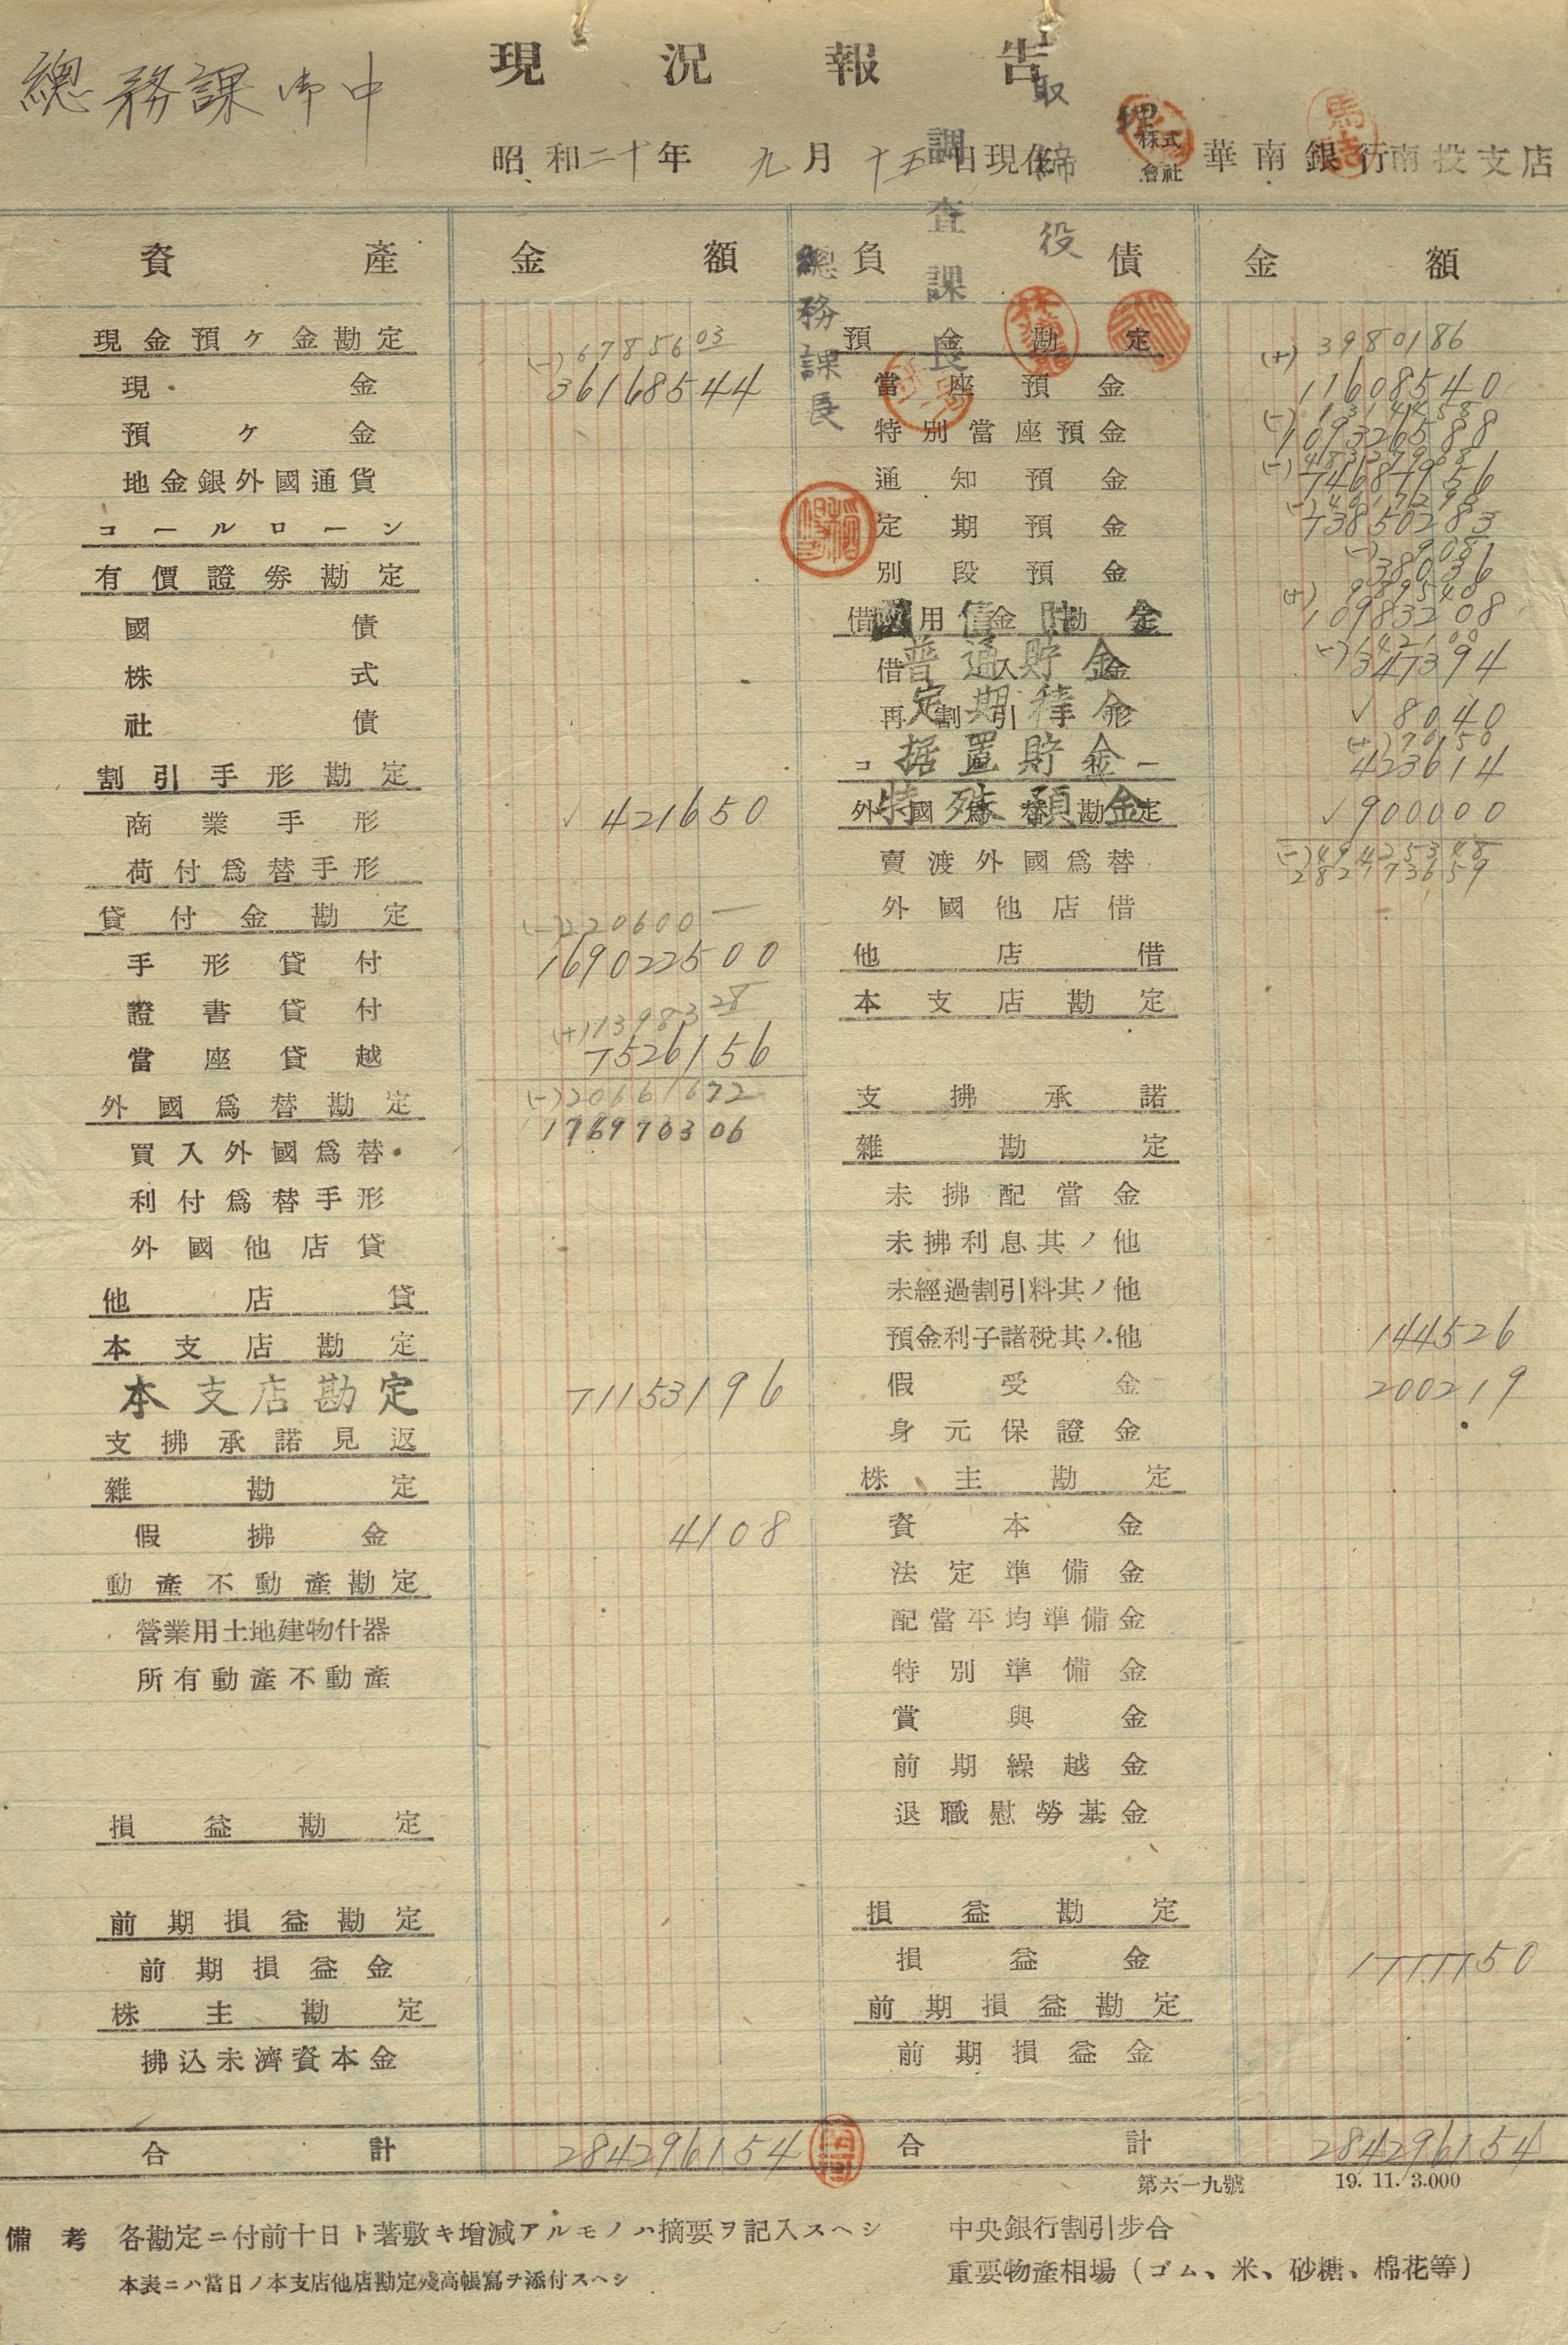 現況報告
總務課御中
昭和二十年九月十五日現在
株式會社華南銀行南投支店
取締役
調查課長
總務課長
資產 金額 負債 金額
現金預ケ金勘定 (-)6785603 預金勘定 (+)3980186
現金 36168544 當座預金 11608540
預ケ金 特別當座預金 109326588
地金銀外國通貨 通知預金 74687956
コールローン 定期預金 73850283
有價證券勘定 別段預金 (-)9081 38036
國債 借用金勘定 國債貯金 (+)989548 10983208
株式 借入金 普通貯金 (-)142100 347394
社債 再割引手形 定期積金 ✓8040
割引手形勘定 据置貯金 (+)70150 423614
商業手形 ✓421650 外國爲替勘定 特殊預金 ✓900000
荷付爲替手形 賣渡外國爲替 (-)49425348 282173659
貸付金勘定 (-)220600— 外國他店借
手形貸付 169022500 他店借
證書貸付 (+)1398328 本支店勘定
當座貸越 7526156
外國爲替勘定 (-)20661672 支拂承諾
買入外國爲替 176970306 雜勘定
利付爲替手形 未拂配當金
外國他店貸 未拂利息其ノ他
他店貸 未經過割引料其ノ他
本支店勘定 預金利子諸稅其ノ他 144526
本支店勘定 71153196 假受金 200219
支拂承諾見返 身元保證金
雜勘定 株主勘定
假拂金 4108 資本金
動產不動產勘定 法定準備金
營業用土地建物什器 配當平均準備金
所有動產不動產 特別準備金
賞與金
前期繰越金
損益勘定 退職慰勞基金
前期損益勘定 損益勘定
前期損益金 損益金 1777750
株主勘定 前期損益勘定
拂込未濟資本金 前期損益金
合計 284296154 合計 284296154
第六一九號 19. 11. 3.000
備考 各勘定ニ付前十日ト著敷キ增減アルモノハ摘要ヲ記入スヘシ 中央銀行割引步合
本表ニハ當日ノ本支店他店勘定殘高帳寫ヲ添付スヘシ 重要物產相場(ゴム、米、砂糖、棉花等)